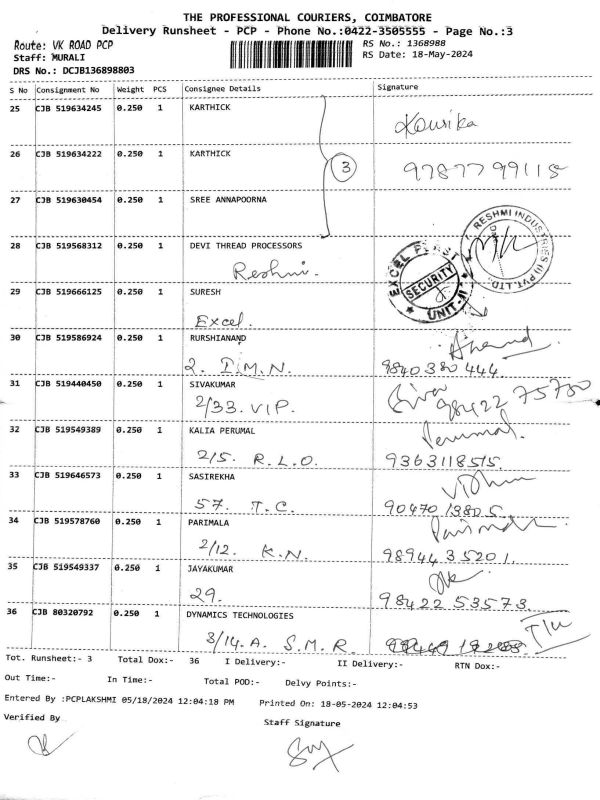 THE PROFESSIONAL COURIERS, COIMBATORE
Delivery Runsheet - PCP - Phone No.:0422-3505555 - Page No.:3
Route: VK ROAD PCP
RS No.: 1368988
Staff: MURALI
RS Date: 18-May-2024
DRS No.: DCJB136898803
S No Consignment No Weight PCS Consignee Details Signature
25 CJB 519634245 0.250 1 KARTHICK
Kousika
26 CJB 519634222 0.250 1 KARTHICK
3
97877 99115
27 CJB 519630454 0.250 1 SREE ANNAPOORNA
28 CJB 519568312 0.250 1 DEVI THREAD PROCESSORS
Reshmi.
RESHMI INDUSTRIES (I) PVT. LTD.
29 CJB 519666125 0.250 1 SURESH
Excel.
EXCEL FIRST SECURITY UNIT-II
30 CJB 519586924 0.250 1 RURSHIANAND
Anand
2. I.M.N. 9840380444
31 CJB 519440450 0.250 1 SIVAKUMAR
2/33. VIP. Siva 98422 75780
32 CJB 519549389 0.250 1 KALIA PERUMAL
Perumal.
2/5. R.L.O. 9363118515.
33 CJB 519646573 0.250 1 SASIREKHA
57. T.C. 90470 13805
34 CJB 519578760 0.250 1 PARIMALA
2/12. K.N. 98944 35201.
35 CJB 519549337 0.250 1 JAYAKUMAR
29. 98422 53573
36 CJB 80320792 0.250 1 DYNAMICS TECHNOLOGIES
3/14.A. S.M.R.
Tot. Runsheet:- 3 Total Dox:- 36 I Delivery:- II Delivery:- RTN Dox:-
Out Time:- In Time:- Total POD:- Delvy Points:-
Entered By :PCPLAKSHMI 05/18/2024 12:04:18 PM Printed On: 18-05-2024 12:04:53
Verified By
Staff Signature